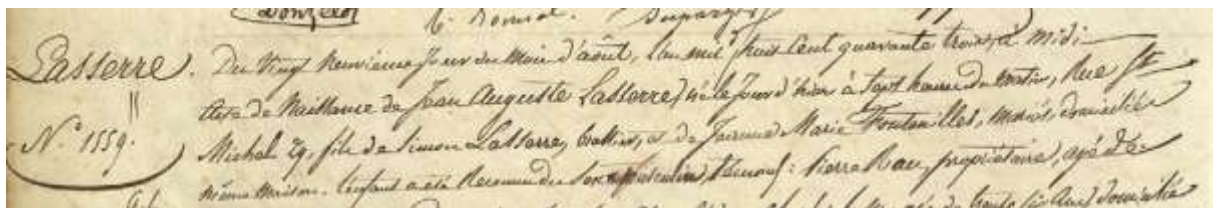 Donzelot
Lasserre.
N.° 1559.
Du vingt neuvième jour du mois d'août, l'an mil huit cent quarante trois, à midi
Acte de Naissance de Jean Auguste Lasserre, né le jour d'hier à sept heures du matin, Rue St
Michel 29, fils de Simon Lasserre, et de Jeanne Marie Fontanilles, mariés, domiciliés
même maison. L'enfant a été Reconnu du Sexe masculin, témoins: Pierre Rau, propriétaire, agé de
trente six ans, domicilié